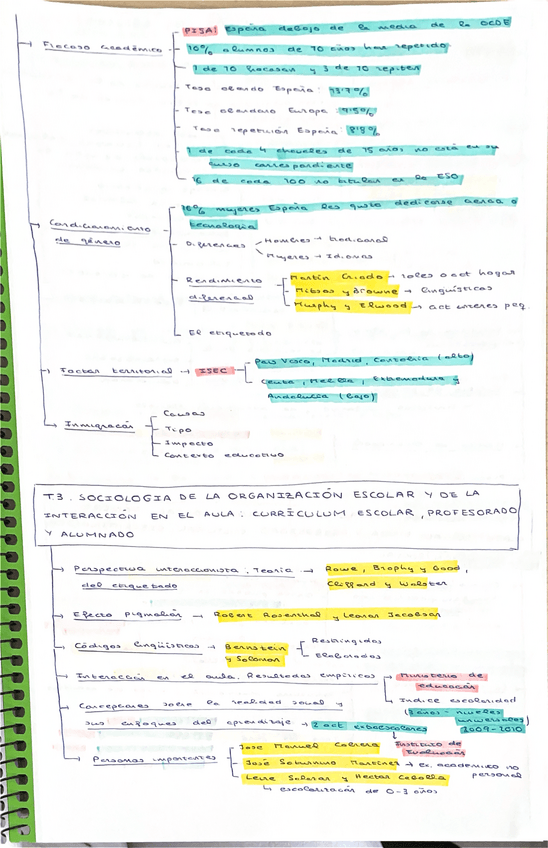 PISA: España debajo de la media de la OCDE
Fracaso académico
10% alumnos de 10 años han repetido
1 de 10 fracasan y 3 de 10 repiten
Tasa abando España: 13.7%
Tasa abandono Europa: 9.5%
Tasa repetición España: 8.8%
1 de cada 4 chavales de 15 años no está en su
curso correspondiente
16 de cada 100 no titulan en la ESO
Condicionamiento
de género
mujeres España les gusta dedicarse a
tecnología
Diferencias
Hombres → tradicional
Mujeres → Idiomas
Rendimiento
diferencial
Martín Criado → roles o act hogar
Mitsos y Browne → lingüísticas
Murphy y Elwood → act interes peq.
El etiquetado
Factor territorial → ISEC
País Vasco, Madrid, Cantabria (alto)
Ceuta, Melilla, Extremadura y
Andalucía (bajo)
Inmigración
Causas
Tipo
Impacto
Contexto educativo
T3. SOCIOLOGIA DE LA ORGANIZACIÓN ESCOLAR Y DE LA
INTERACCIÓN EN EL AULA: CURRÍCULUM ESCOLAR, PROFESORADO
Y ALUMNADO
Perspectiva interaccionista. Teoría
del etiquetado
→ Rowe, Brophy y Good,
Cliffard y Walster
Efecto pigmalión → Robert Rosenthal y Leonor Jacobson
Códigos lingüísticos → Bernstein
y Solomon
Restringidos
Elaborados
Interacción en el aula. Resultados empíricos
Ministerio de
educación
Indice escolaridad
Concepciones sobre la realidad social y
sus enfoques del aprendizaje → 2 act extraescolares
niveles
universales
2009-2010
Personas importantes
José Manuel Cabrera
Instituto de
Evaluación
José Saturnino Martínez → ec. académico no
personal
Leire Salazar y Hector Cebolla
↳ escolarización de 0-3 años